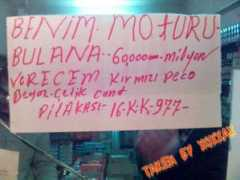 BENİM MOTURU
BULANA-- 60,000000-milyon
VeRECEM Kırmızı Peco
Beyaz çelik cant
PiLAKASI- 16-K.K-977-
TAKLEA BY